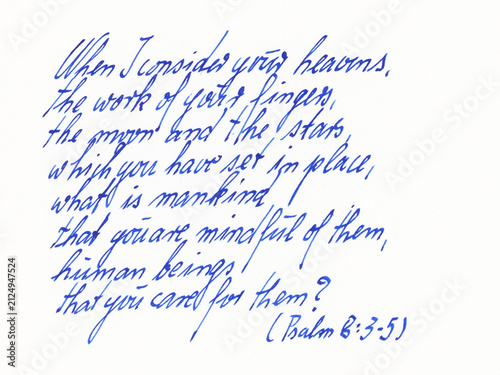 When I consider your heavens,
the work of your fingers,
the moon and the stars,
which you have set in place,
what is mankind
that you are mindful of them,
human beings
that you care for them?
(Psalm 8:3-5)
Adobe Stock | #2124947524